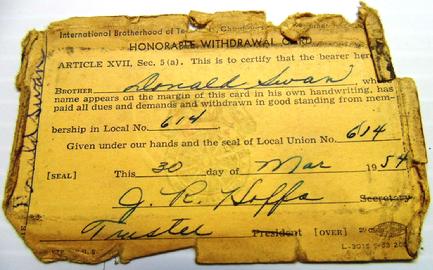 International Brotherhood of
HONORABLE WITHDRAWAL CARD
ARTICLE XVII, Sec. 5(a). This is to certify that the bearer here
BROTHER Donald Swan whose
name appears on the margin of this card in his own handwriting, has
paid all dues and demands and withdrawn in good standing from mem-
bership in Local No. 614
Given under our hands and the seal of Local Union No. 614
[SEAL] This 30 day of Mar 1954
J. R. Hoffa Secretary
Trustee President [OVER]
L-3015 9-53 200
Donald Swan